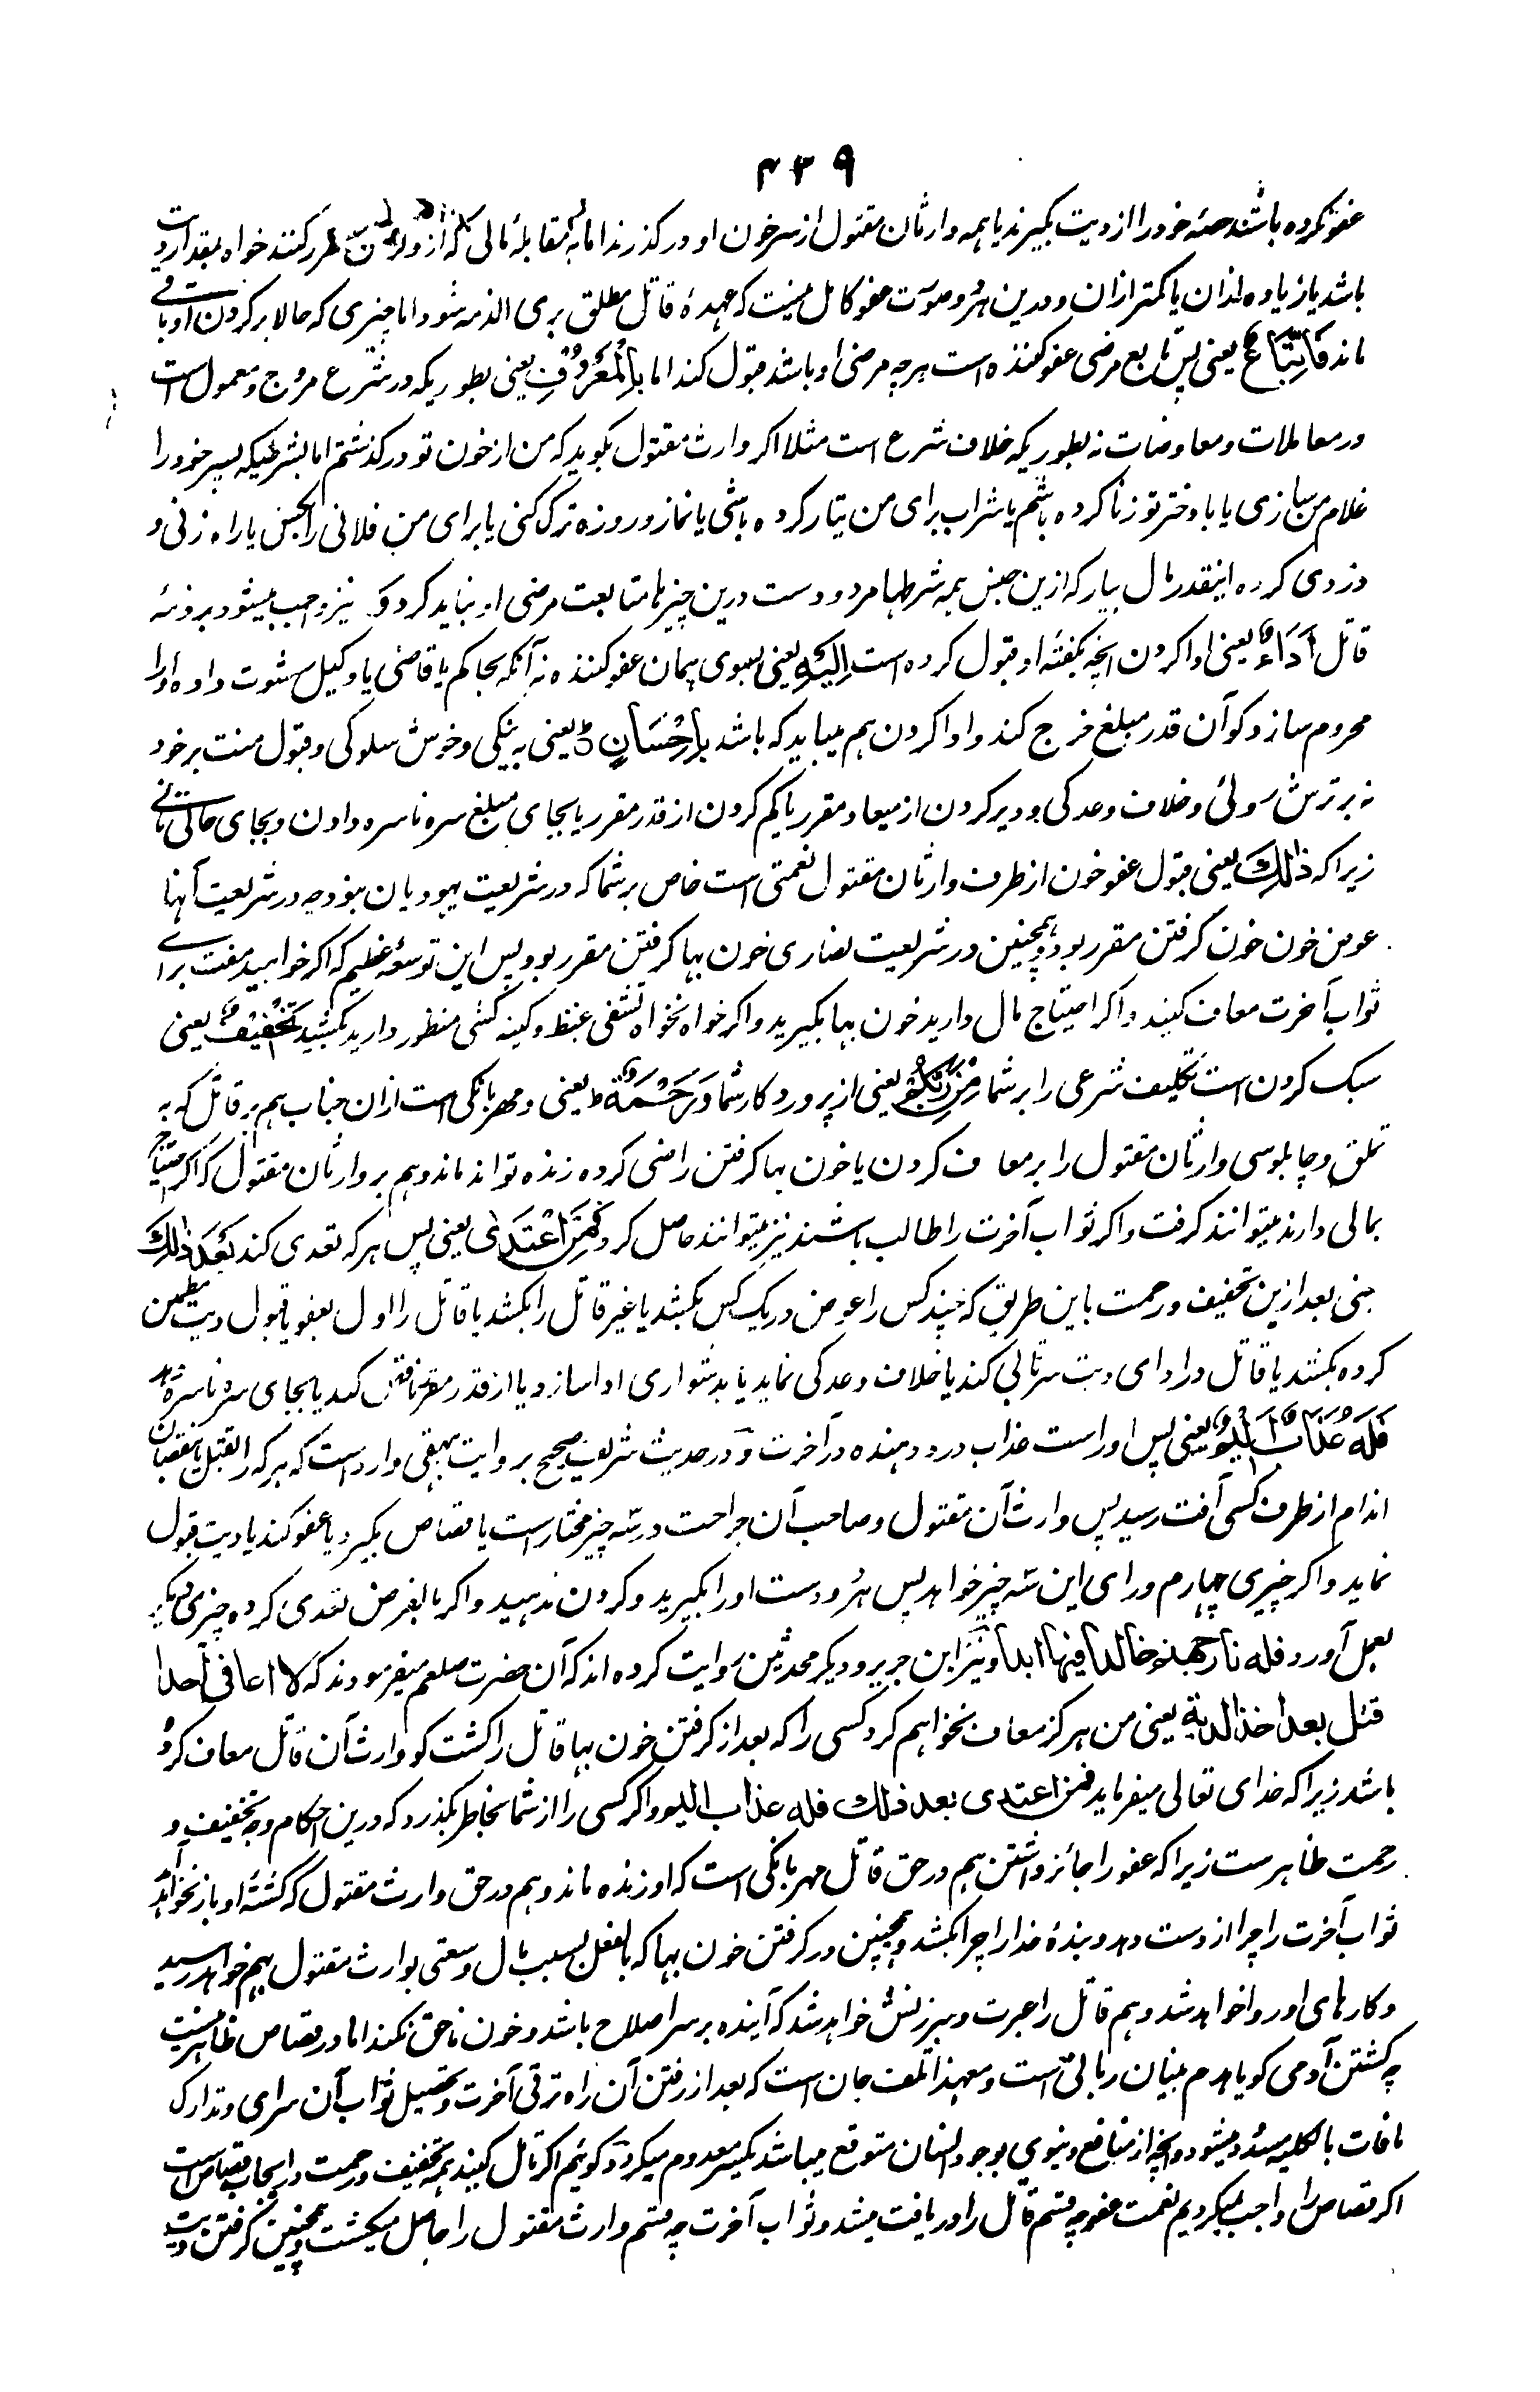 ۴۳۹
عفو نکرده باشند حصهٔ خود را از دیت بگیرند یا همه وارثان مقتول از سر خون او در گذرند اما به مقابلهٔ مالی که از و مقرر کنند خواه بمقدار دیت
باشد یا زیاده ازان یا کمتر ازان و درین هر دو صورت عفو کامل نیست که عهدهٔ قاتل مطلق بری الذمه شود اما چیزی که حالا بر گردن او باقی
ماند فَاتِّبَاعٌ یعنی پس تابع مرضی عفو کننده است هرچه مرضی او باشد قبول کند اما بِالْمَعْرُوفِ یعنی بطوریکه در شرع مروج و معمول است
در معاملات و معاوضات نه بطوریکه خلاف شرع است مثلا اگر وارث مقتول بگوید که من از خون تو در گذشتم اما بشرطیکه پسر خود را
غلام من سازی یا با دختر تو زنا کرده باشم یا شراب برای من تیار کرده باشی یا نماز و روزه ترک کنی یا برای من فلانی را بکش یا راه زنی و
دزدی کرده اینقدر مال بیار که ازین جنس همه شرطها مردود ست درین چیزها متابعت مرضی او نباید کرد و نیز واجب میشود بر ذمهٔ
قاتل أَدَاءٌ یعنی ادا کردن آنچه بگفتهٔ او قبول کرده است إِلَیْهِ یعنی بسوی همان عفو کننده نه آنکه بحاکم یا قاضی یا وکیل رشوت داده او را
محروم سازد گو آن قدر مبلغ خرج کند و ادا کردن هم میباید که باشد بِإِحْسَانٍ یعنی به نیکی و خوش سلوکی و قبول منت بر خود
نه بر ترش روئی و خلاف وعدگی و دیر کردن از میعاد مقرر یا کم کردن از قدر مقرر یا بجای مبلغ سره ناسره دادن و بجای
زیرا که ذٰلِكَ یعنی قبول عفو خون از طرف وارثان مقتول نعمتی است خاص بر شما که در شریعت یهودیان نبود چه در شریعت آنها
عوض خون خون گرفتن مقرر بود و همچنین در شریعت نصاری خون بها گرفتن مقرر بود پس این توسعهٔ عظیم که اگر خواهید مفت برای
ثواب آخرت معاف کنید و اگر احتیاج مال دارید خون بها بگیرید و اگر خواه نخواه تشفی غیظ و کینه کشی منظور دارید بکشید تَخْفِیْفٌ یعنی
سبک کردن است تکلیف شرعی را بر شما مِنْ رَبِّكُمْ یعنی از پروردگار شما وَرَحْمَةٌ ط یعنی و مهربانگی است ازان جناب هم بر قاتل که به
تملق و چاپلوسی وارثان مقتول را بر معاف کردن یا خون بها گرفتن راضی کرده زنده تواند ماند و هم بر وارثان مقتول که اگر احتیاج
بمالی دارند میتوانند گرفت و اگر ثواب آخرت را طالب باشند نیز میتوانند حاصل کرد فَمَنِ اعْتَدٰی یعنی پس هر که تعدی کند بَعْدَ ذٰلِكَ
یعنی بعد ازین تخفیف و رحمت باین طریق که چند کس را عوض در یک کس بکشد یا غیر قاتل را بکشد یا قاتل را اول بعفو یا قبول دیت مطمئن
کرده بکشد یا قاتل در ادای دیت سرتابی کند یا خلاف وعدگی نماید یا بدشواری ادا سازد یا از قدر مقرر ناقص کند یا بجای سره ناسره دهد
فَلَهٗ عَذَابٌ أَلِیْمٌ یعنی پس او راست عذاب درد دهنده در آخرت و در حدیث شریف صحیح بروایت بیهقی وارد است که هر که را بقتل یا بنقصان
اندام از طرف کسی آفت رسید پس وارث آن مقتول و صاحب آن جراحت در سه چیز مختار است یا قصاص بگیرد یا عفو کند یا دیت قبول
نماید و اگر چیزی چهارم ورای این سه چیز خواهد پس هر دو دست او را بگیرید و کردن ندهید و اگر بالفرض تعدی کرده چیزی دیگر
بعمل آورد فله نار جهنم خالدا فیها ابدا و نیز ابن جریر و دیگر محدثین روایت کرده اند که آن حضرت صلعم میفرمودند که لا اعافی احدا
قتل بعد اخذ الدیة یعنی من هرگز معاف نخواهم کرد کسی را که بعد از گرفتن خون بها قاتل را کشت گو وارث آن قاتل معاف کرده
باشد زیرا که خدای تعالی میفرماید فمن اعتدی بعد ذلك فله عذاب الیم و اگر کسی را از شما بخاطر بگذرد که درین احکام وجه تخفیف و
رحمت ظاهرست زیرا که عفو را جائز داشتن هم در حق قاتل مهربانگی است که او زنده ماند و هم در حق وارث مقتول که کشتهٔ او باز نخواهد آمد
ثواب آخرت را چرا از دست دهد و بندهٔ خدا را چرا بکشد و همچنین در گرفتن خون بها که بالفعل بسبب مال وسعتی بوارث مقتول بهم خواهد رسید
و کارهای او روا خواهد شد و هم قاتل را عبرت و سرزنش خواهد شد که آینده بر سر اصلاح باشد و خون ناحق نکند اما در قصاص ظاهر نیست
چه کشتن آدمی گویا هدم بنیان ربانی است و معهذا تلف جان است که بعد از رفتن آن راه ترقی آخرت و تحصیل ثواب آن سرای و تدارک
مافات بالکلیه مسدود میشود و آنچه از منافع دنیوی بوجود انسان متوقع میباشد یکسر معدوم میگردد گوئیم اگر تامل کنید همه تخفیف و رحمت در ایجاب قصاص است
اگر قصاص را واجب نمیکردیم نعمت عفو چه قسم قاتل را دریافت میشد و ثواب آخرت چه قسم وارث مقتول را حاصل میگشت و همچنین گرفتن دیت